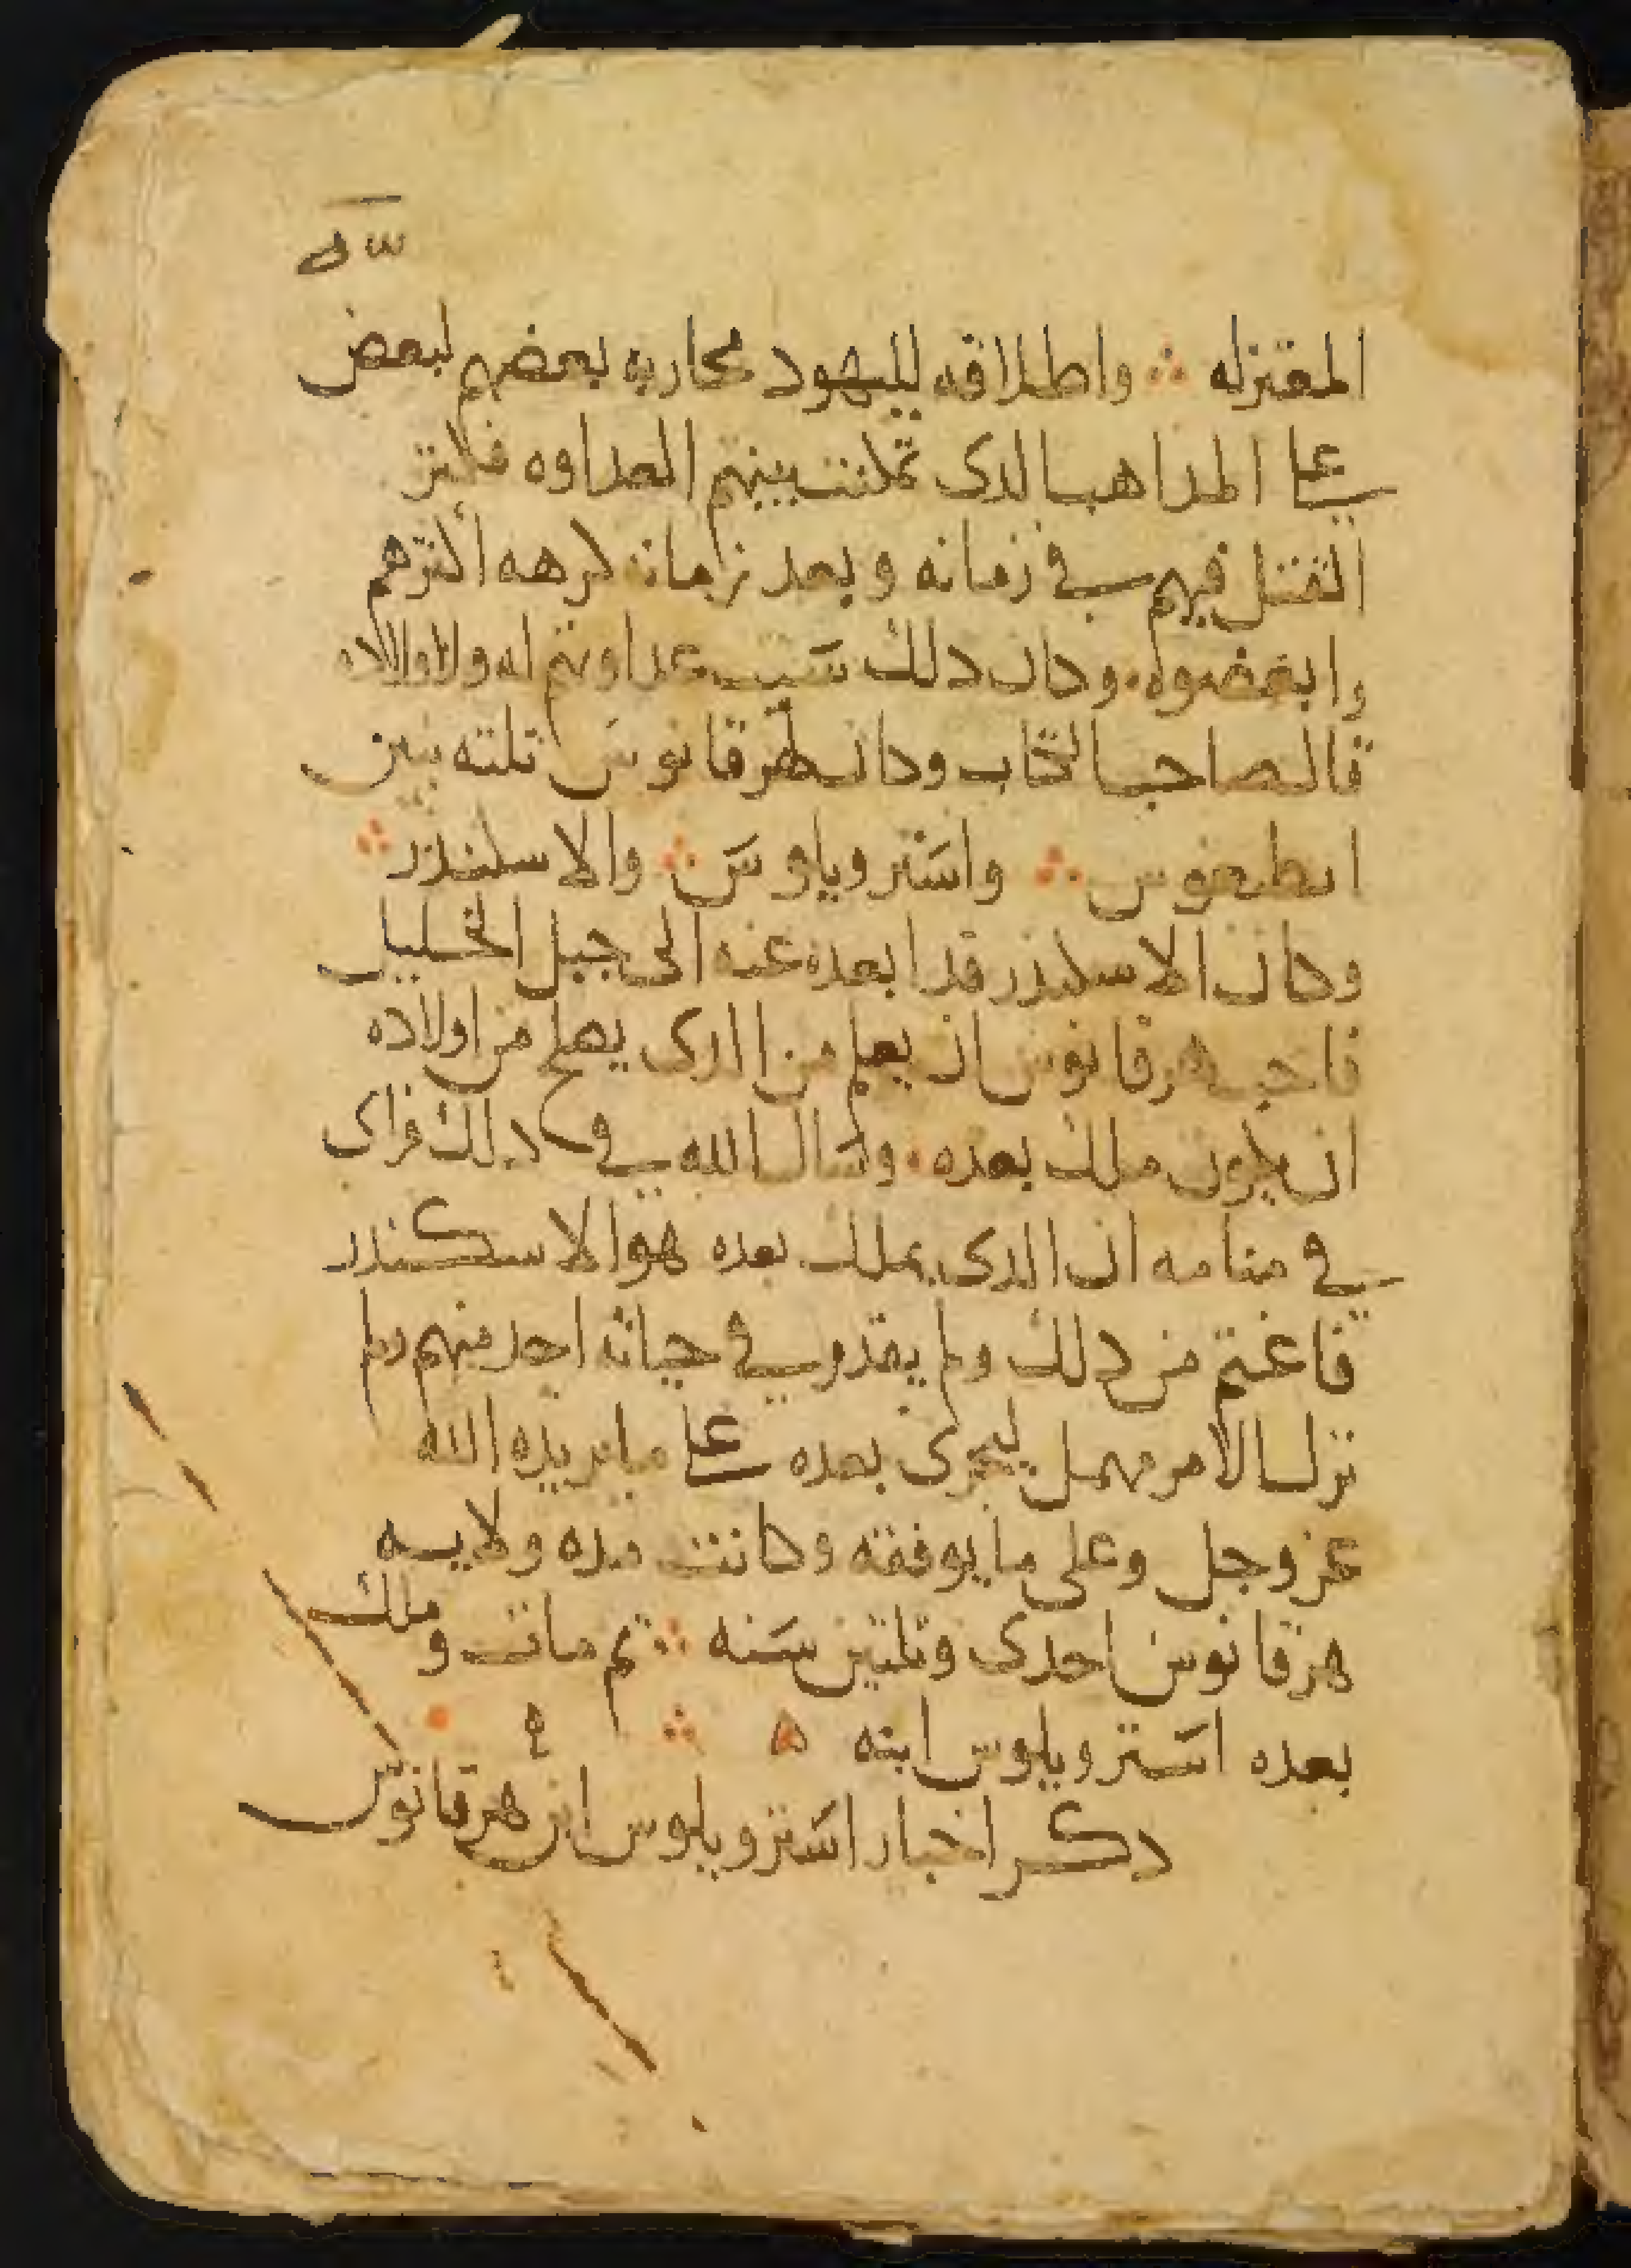 المعتزله ⁘ واطلاقه لليهود محاربه بعضهم لبعض
على المداهب الدى تمكنت بينهم العداوه فكتر
القتل فيهم في زمانه وبعد زمانه كرهه أكترهم
وابغضوه. وكان دلك سبب عداوتهم له ولاولاده
قال صاحب الكتاب وكان لهرقانوس تلته بنين
انطيغنوس ⁘ واسترو بلوس ⁘ والاسكندر ⁘
وكان الاسكندر قد ابعده عنه الى جبل الخليل
فاحب هرقانوس ان يعلم من الدى يصلح من اولاده
ان يكون ملك بعده. وسال الله في دلك فراى
في منامه ان الدى يملك بعده هو الاسكندر
فاغتم من دلك ولم يقدم في حياته احد منهم ولم
ترك الامر مهمل ليجرى بعده على ما يريده الله
عز وجل وعلى ما يوفقه وكانت مده ولايه
هرقانوس احدى وتلتين سنه ⁘ تم مات وملك
بعده استروبلوس ابنه ه ⁘
دكر اخبار استروبلوس ابن هرقانوس